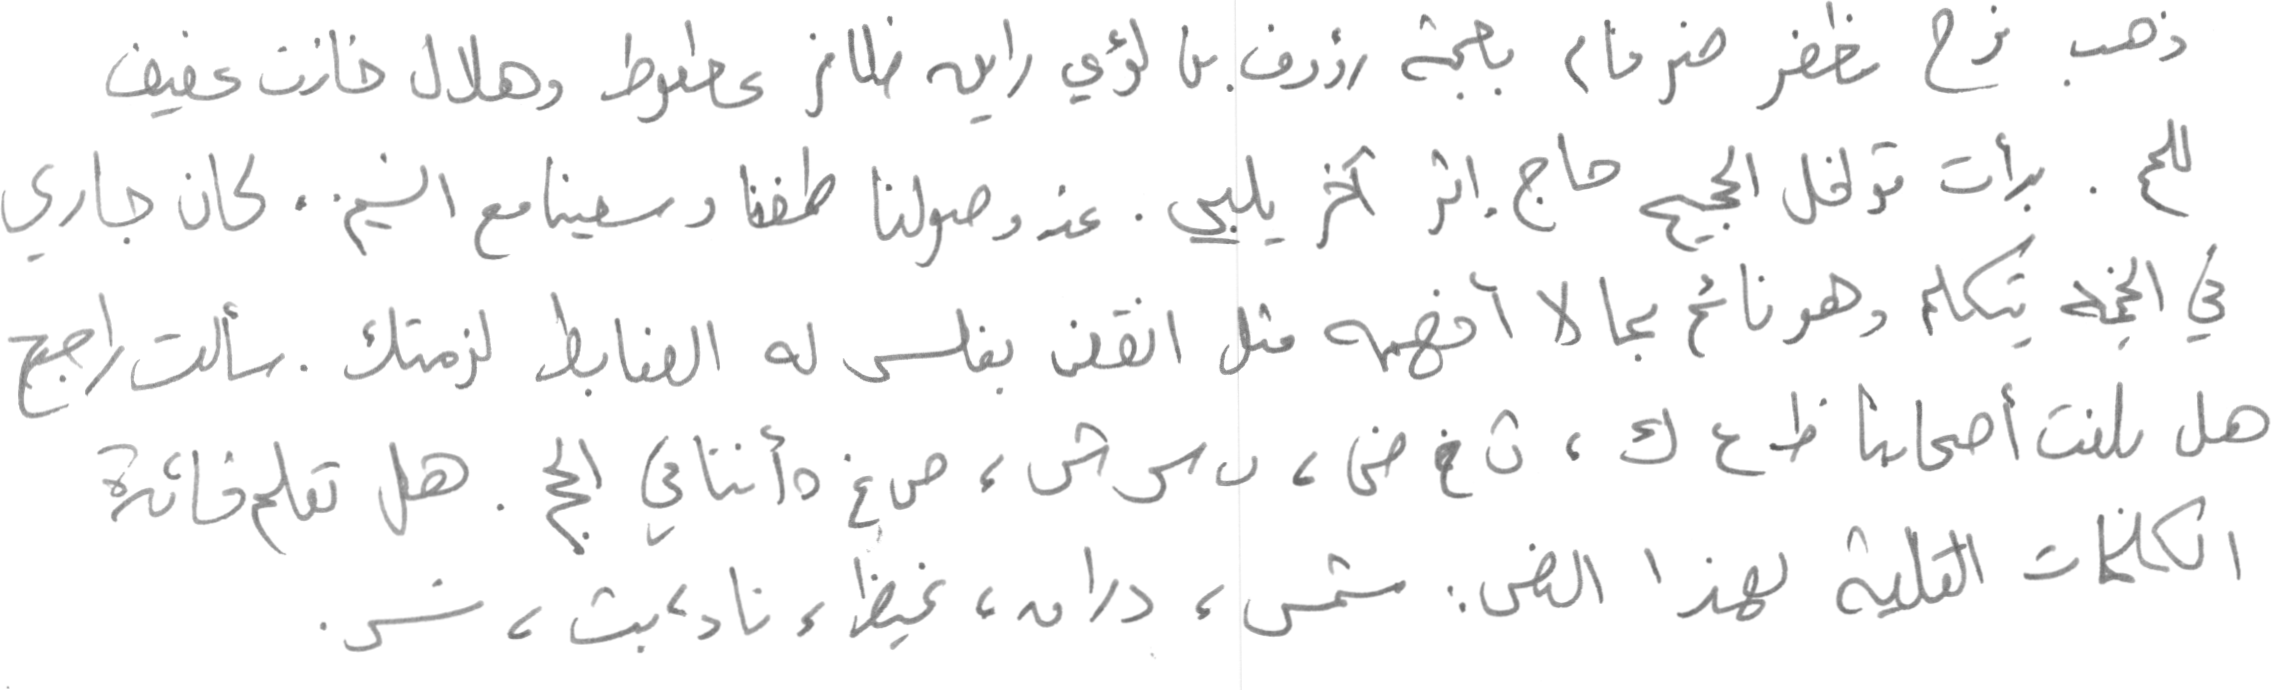 ذهب نوح مظفر ضرغام بصحبة رؤوف بن لؤي راين ظافر عطعوط وهلال خازن عفيف
للحج . بدأت قوافل الحجيج حاج إثر آخر يلبي . عند وصولنا طفنا وسعينا مع الشيم . كان جاري
في الخيمة يتكلم وهو نائم بما لا أفهمه مثل انقض بفلس له الضابط لزمتك . سألت راجح
هل بلغت أصحابنا ظ ع ك ، ث غ ض ، ب س ش ، ص غ ه أننا في الحج . هل تعلم فائدة
الكلمات التالية لهذا النص : شمس ، دران ، غيظ ، ناد ، بث ، نس .